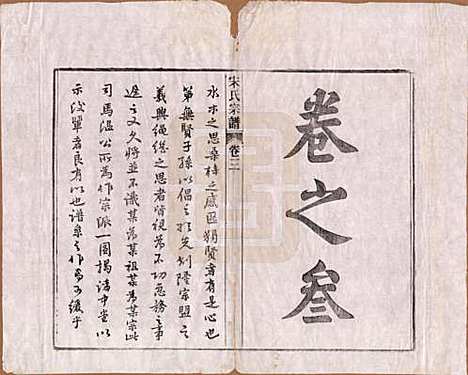 卷之叁
宋氏宗譜
卷三
水木之思桑梓之感區有賢者有是心也
第無賢子孫以倡之於先則隆宗盟之
義興繩繩之思者皆視為不切急務之事
遲之又久將並不識某為某祖某為某宗此
司馬溫公所為作宗派一圖揭諸中堂以
示後輩者良有以也譜系之作烏可緩乎